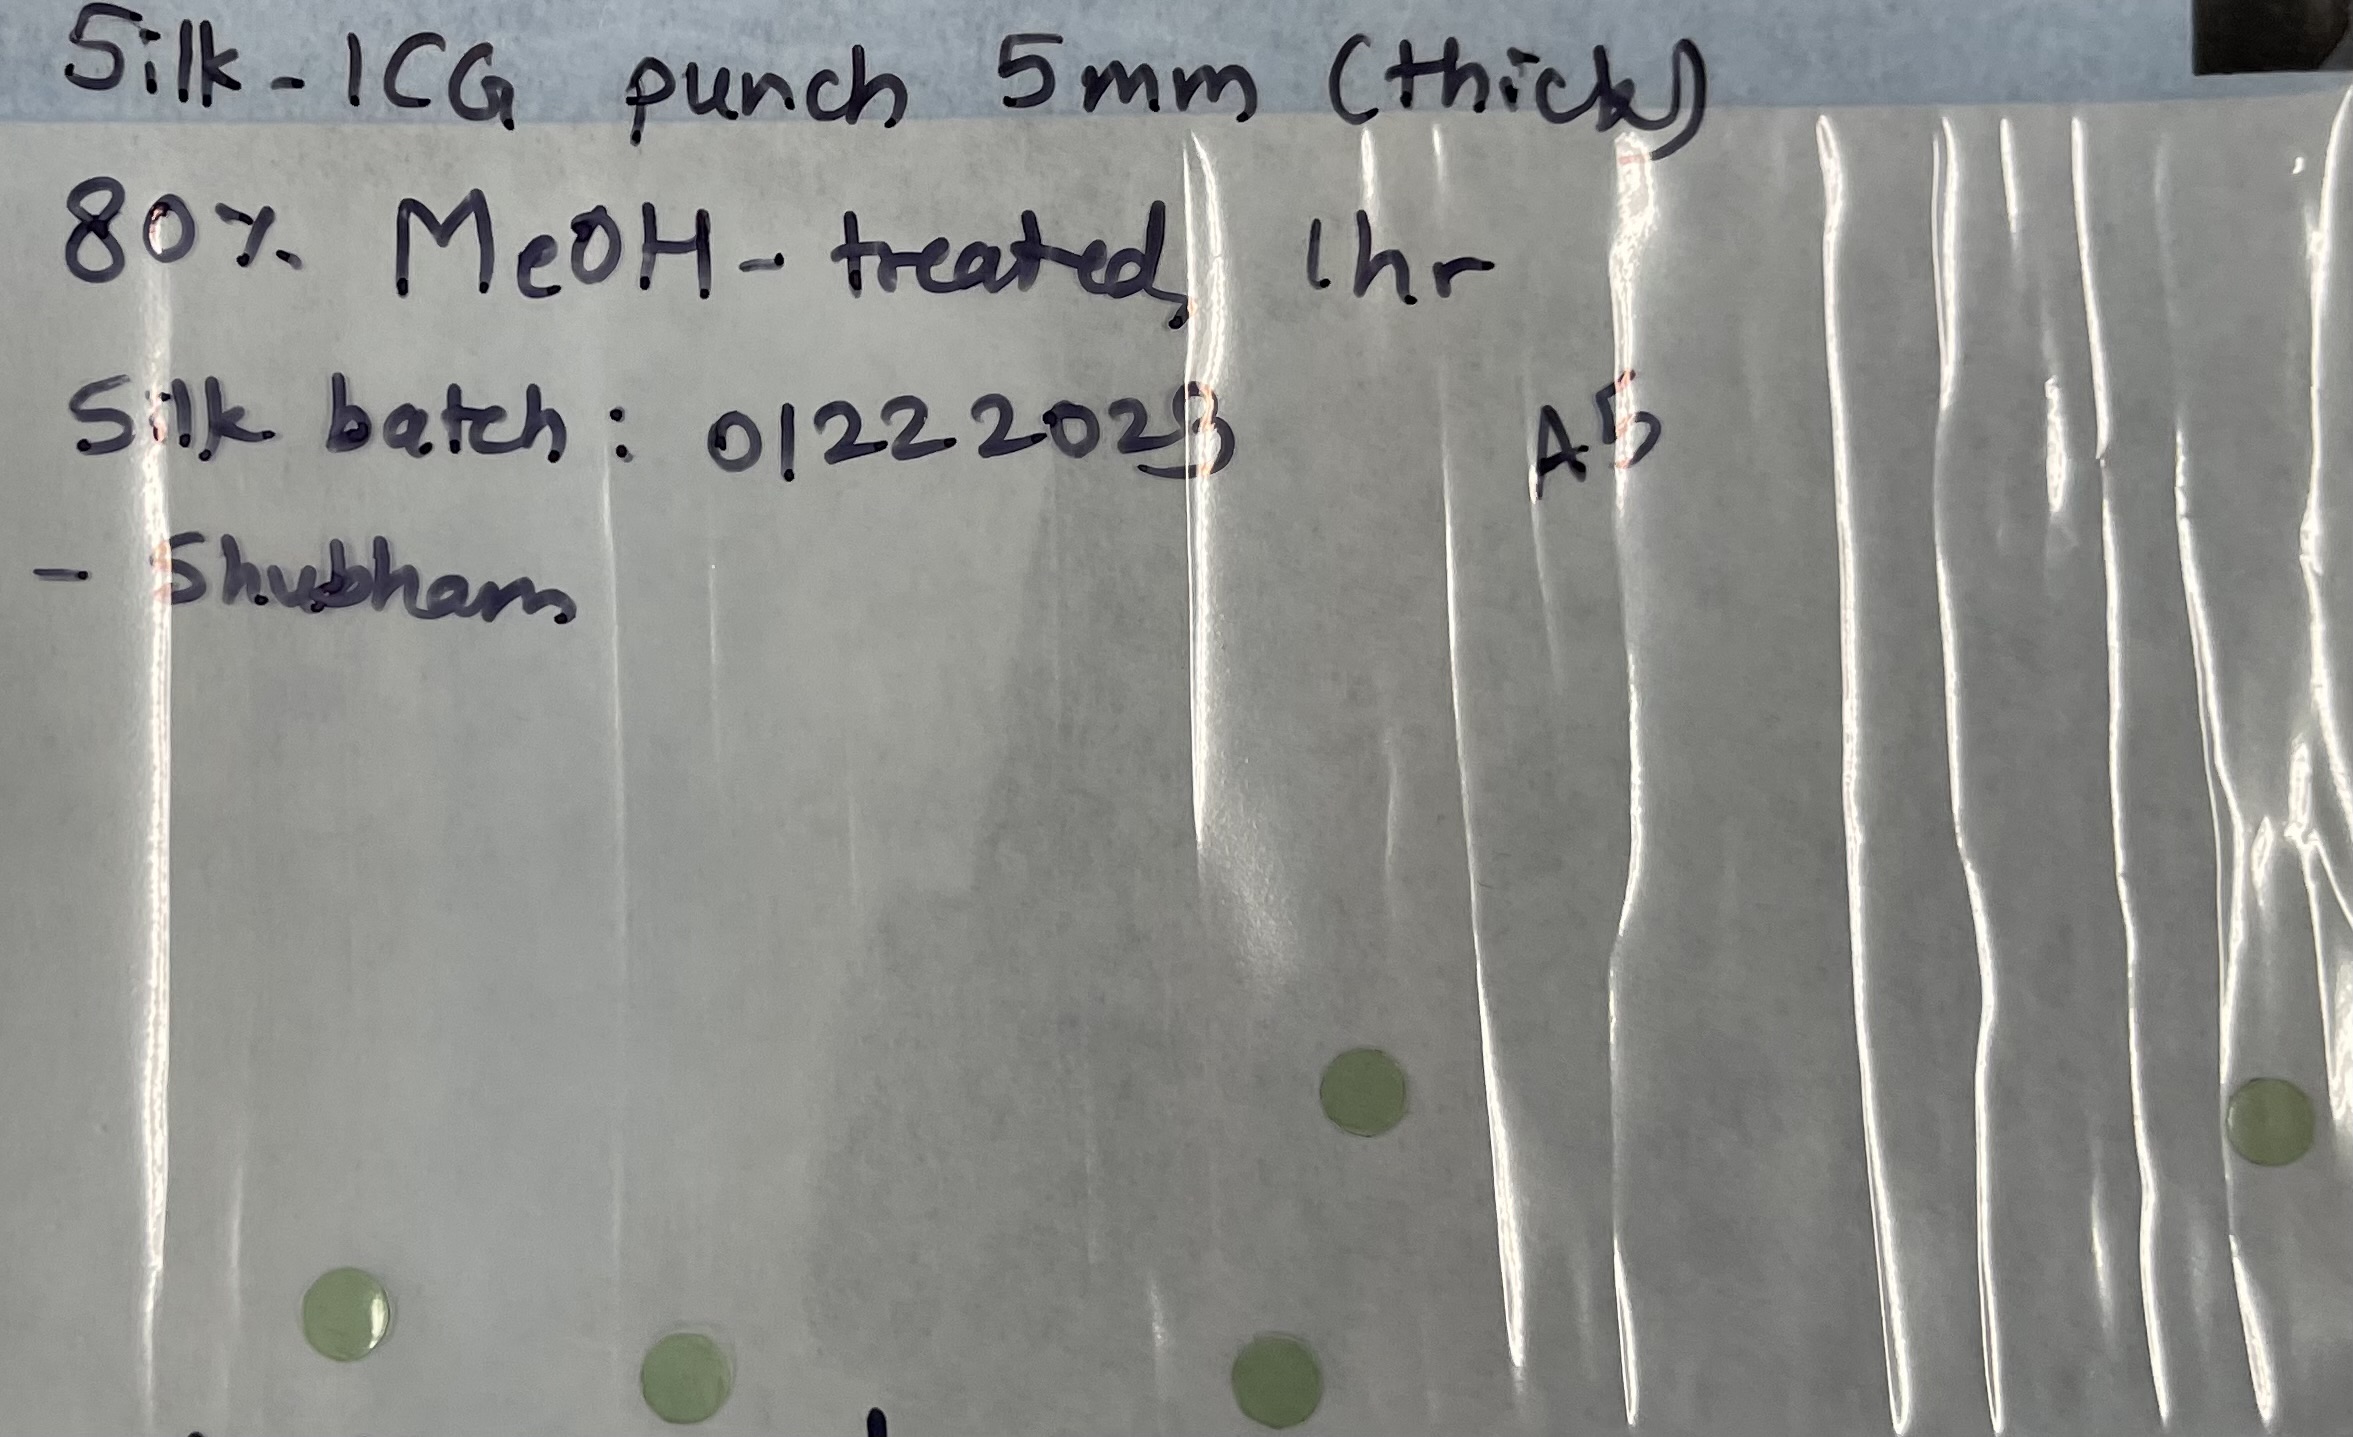 Silk-ICG punch 5mm (thick)
80% MeOH-treated, 1hr
Silk batch: 01222023 A5
- Shubham